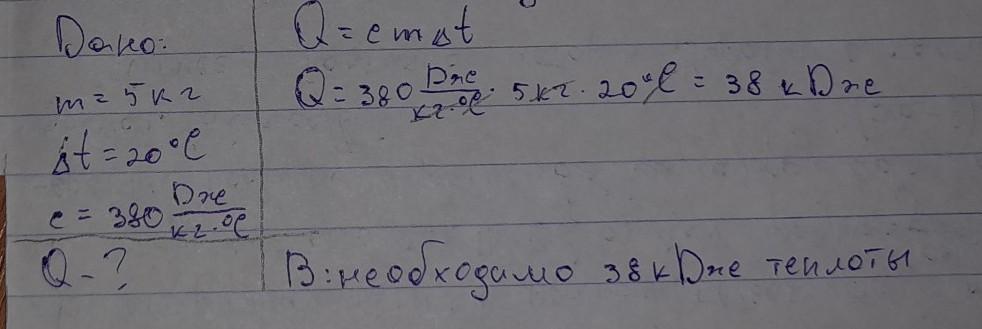 Дано:
m = 5 кг
Δt = 20 °C
c = 380 Дже/кг·°C
Q - ?
Q = c m Δt
Q = 380 Дже/кг·°C · 5 кг · 20 °C = 38 кДже
В: необходимо 38 кДже теплоты.